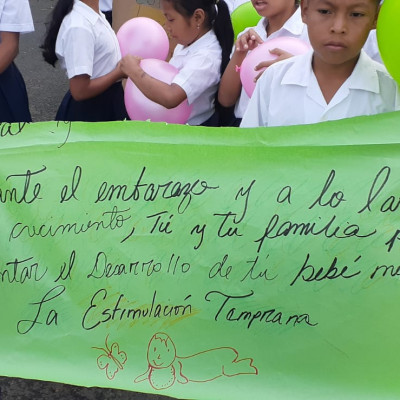 al y
ante el embarazo y a lo la
crecimiento, Tú y tu familia p
ntar el Desarrollo de tú bebé me
La Estimulación Temprana